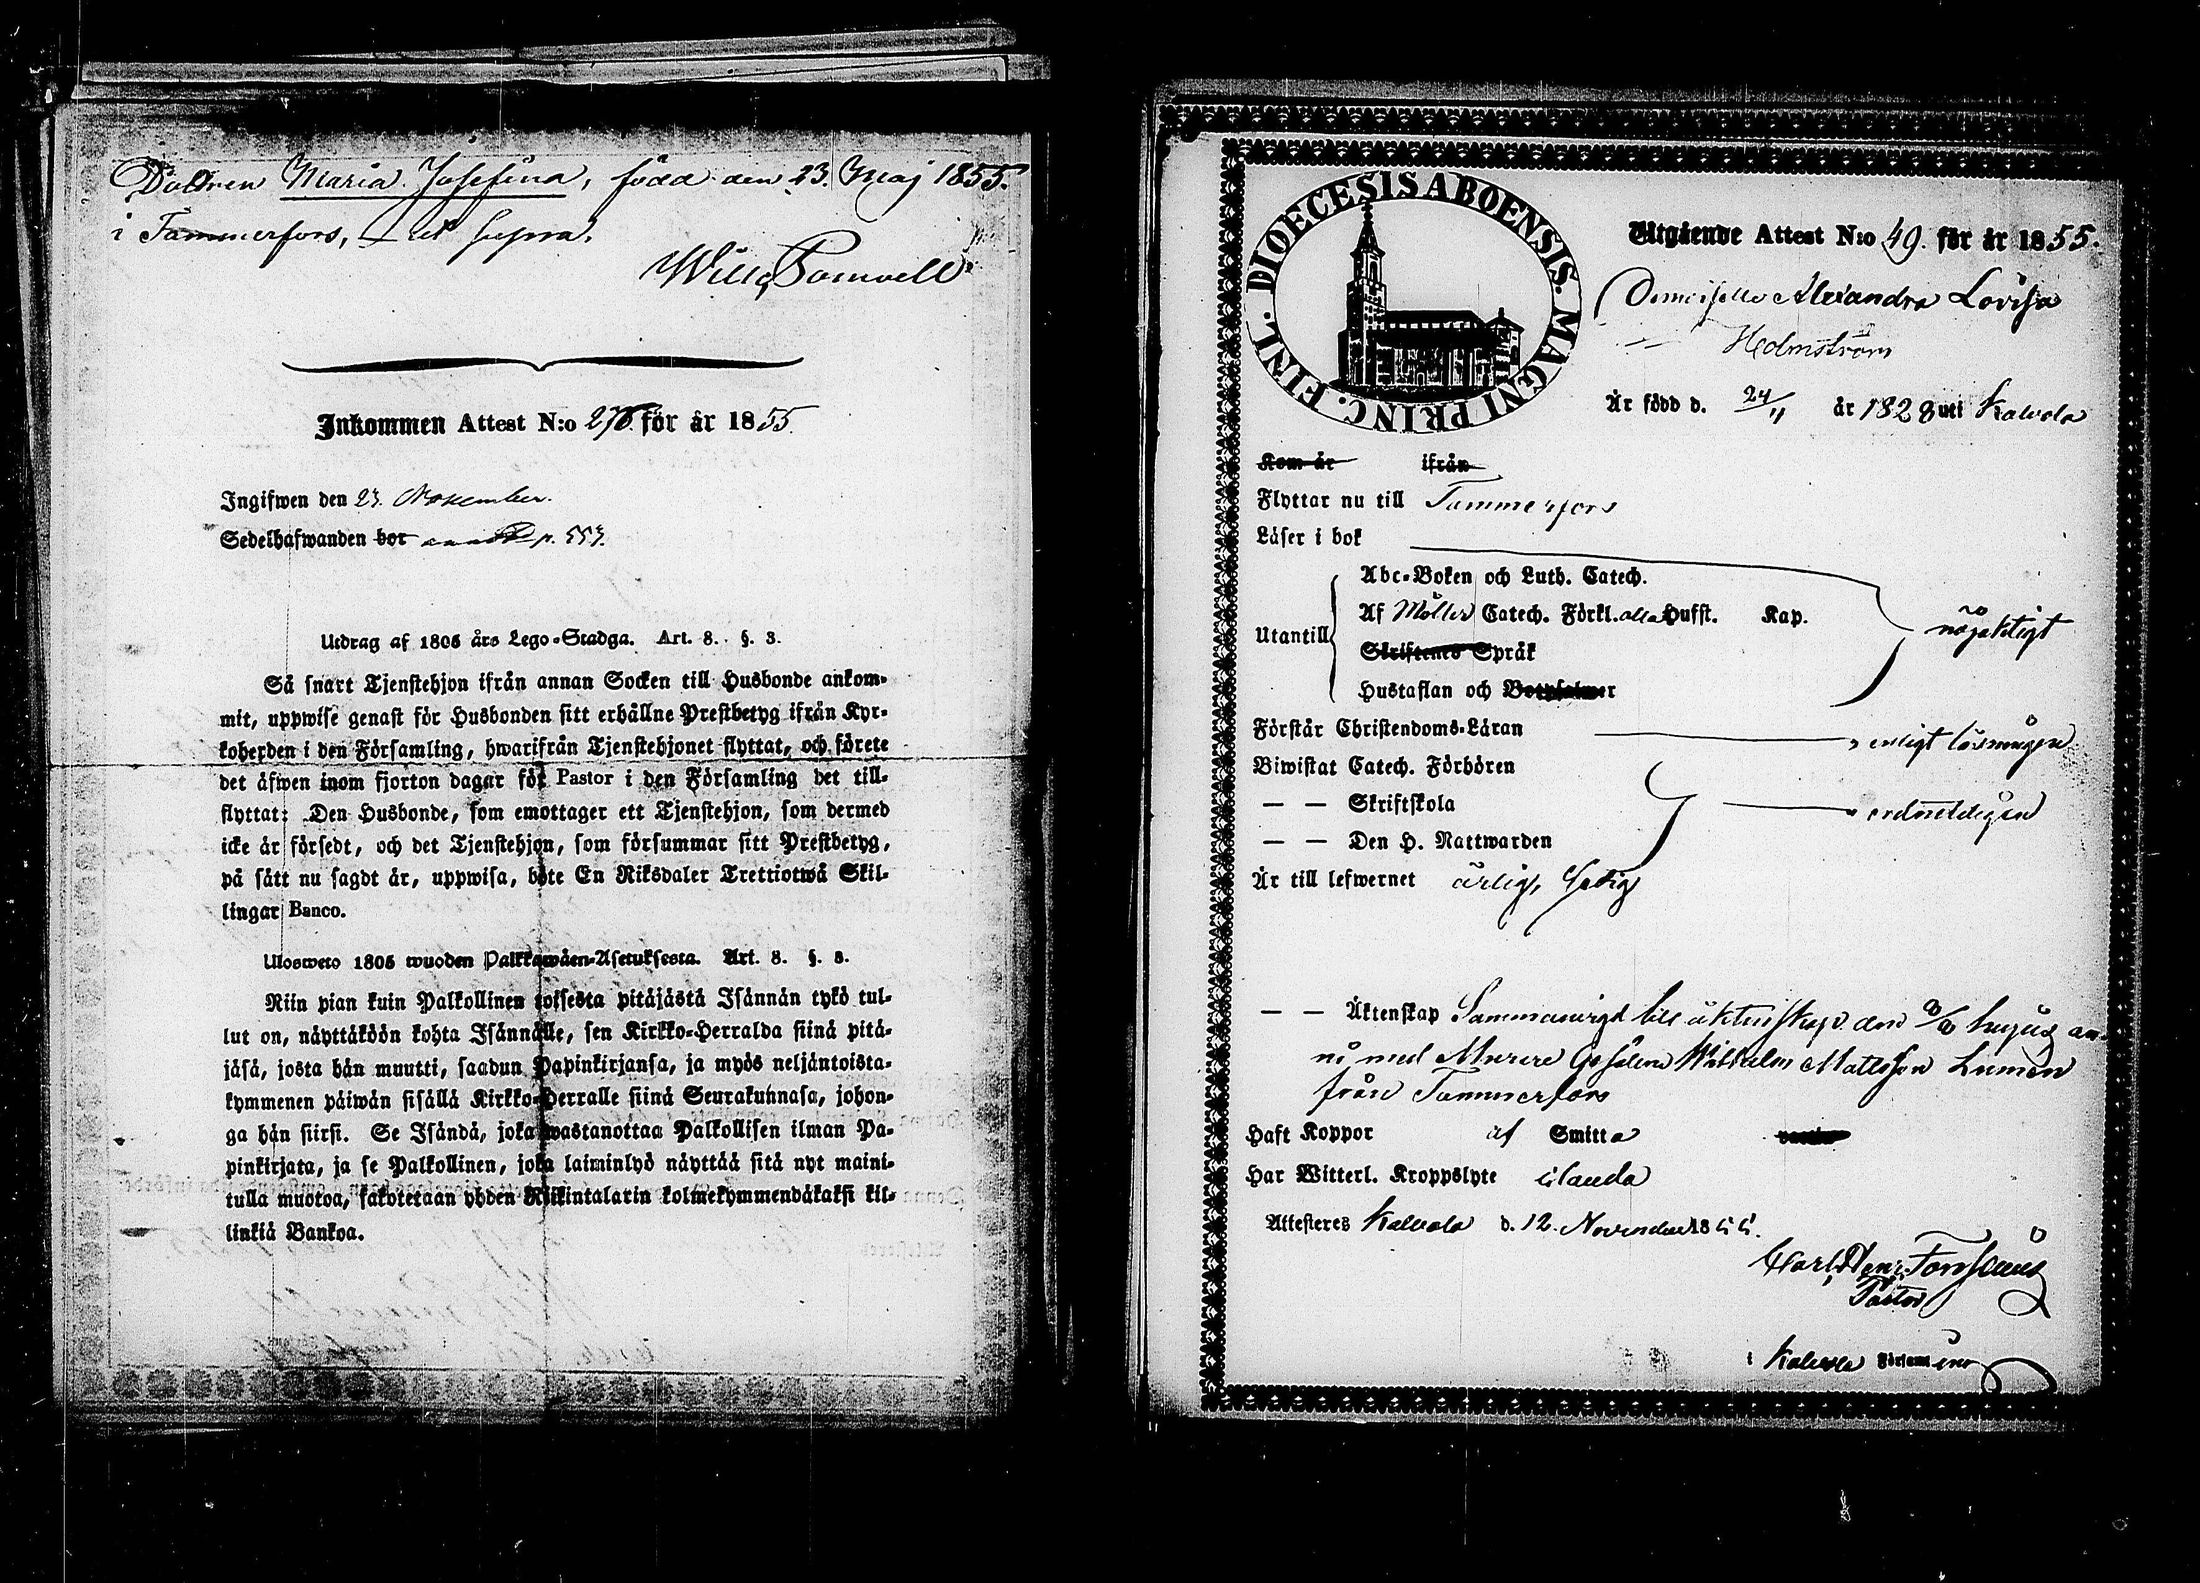 Dottren Maria Josefina, född den 23. Maj 1855.
i Tammerfors, ut supra.
Inkommen Attest N:o 276. för år 1855.
Ingifwen den 23. November.
Sedelhafwanden bor p. 553.
Utdrag af 1805 års Lego-Stadga. Art. 8. §. 3.
Så snart Tjenstehjon ifrån annan Socken till Husbonde ankom-
mit, uppwise genast för Husbonden sitt erhållne Prestbetyg ifrån Kyr-
koherden i den Församling, hwarifrån Tjenstehjonet flyttat, och förete
det äfwen inom fjorton dagar för Pastor i den Församling det till-
flyttat: Den Husbonde, som emottager ett Tjenstehjon, som dermed
icke är försedt, och det Tjenstehjon, som försummar sitt Prestbetyg,
på sätt nu sagdt är, uppwisa, böte En Riksdaler Trettiotwå Skil-
lingar Banco.
Ulosweto 1805 wuoden Palkkawäen-Asetuksesta. Art. 8. §. 3.
Niin pian kuin Palkollinen toisesta pitäjästä Isännän tykö tul-
lut on, näyttäköön kohta Isännälle, sen Kirkko-Herralda siinä pitä-
jäsä, josta hän muutti, saadun Papinkirjansa, ja myös neljäntoista-
kymmenen päiwän sisällä Kirkko-Herralle siinä Seurakuhnasa, johon-
ga hän siirsi. Se Isändä, joka wastanottaa Palkollisen ilman Pa-
pinkirjata, ja se Palkollinen, joka laiminlyö näyttää sitä nyt maini-
tulla muotoa, sakotetaan yhden Riikintalarin kolmekymmendäkaksi kil-
linkiä Bankoa.
DIOECESIS ABOENSIS. MAGNI PRINC. FINL.
Utgående Attest N:o 49. för år 1855.
Demoiselle Alexandra Lovisa
Holmström
Är född d. 24/11 år 1828 uti Kalvola
Kom år ifrån
Flyttar nu till Tammerfors
Läser i bok
Abc-Boken och Luth. Catech.
Utantill Af Möller Catech. Förkl. alla Hufst. Kap. nöjaktigt
Skriftenes Språk
Hustaflan och Botpsalmer
Förstår Christendoms-Läran enligt läsningen
Biwistat Catech. Förhören
— — Skriftskola ordenteligen
— — Den H. Nattwarden
Är till lefwernet ärlig, ledig
— — Äktenskap Sammanvigd till äktenskap den hujus an-
ni med Murare Gesällen Wilhelm Mattsson Lumen
från Tammerfors
Haft Koppor af Smitta
Har Witterl. Kroppslyte
Attesteres Kalvola d. 12. November 1855.
Pastor
i Kalvola Församl